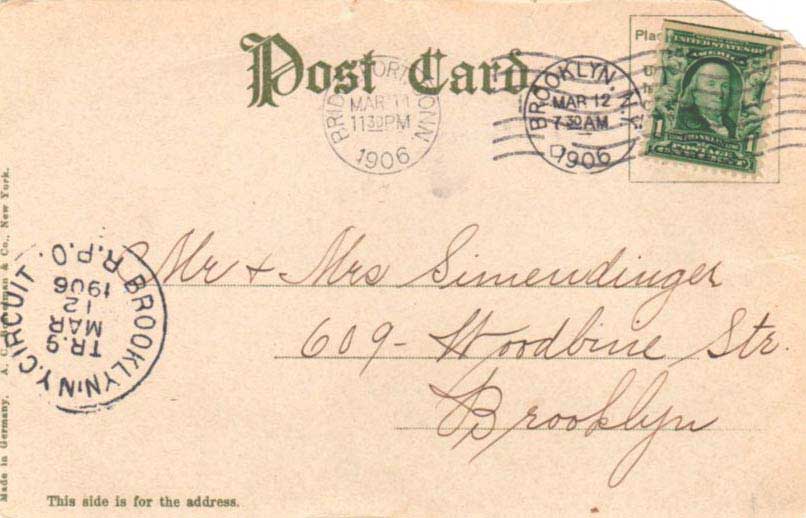 Post Card
BRIDGEPORT CONN
MAR 11
11 30 PM
1906
BROOKLYN, N.Y.
MAR 12
7 30 AM
D
1906
Plac
UNITED STATES OF
AMERICA
1
Mr & Mrs Simendinger
609 - Woodbine Str.
Brooklyn
BROOKLYN, N.Y. CIRCUIT
TR. 9
MAR
12
1906
R.P.O.
Made in Germany. A. C. & Co., New York.
This side is for the address.